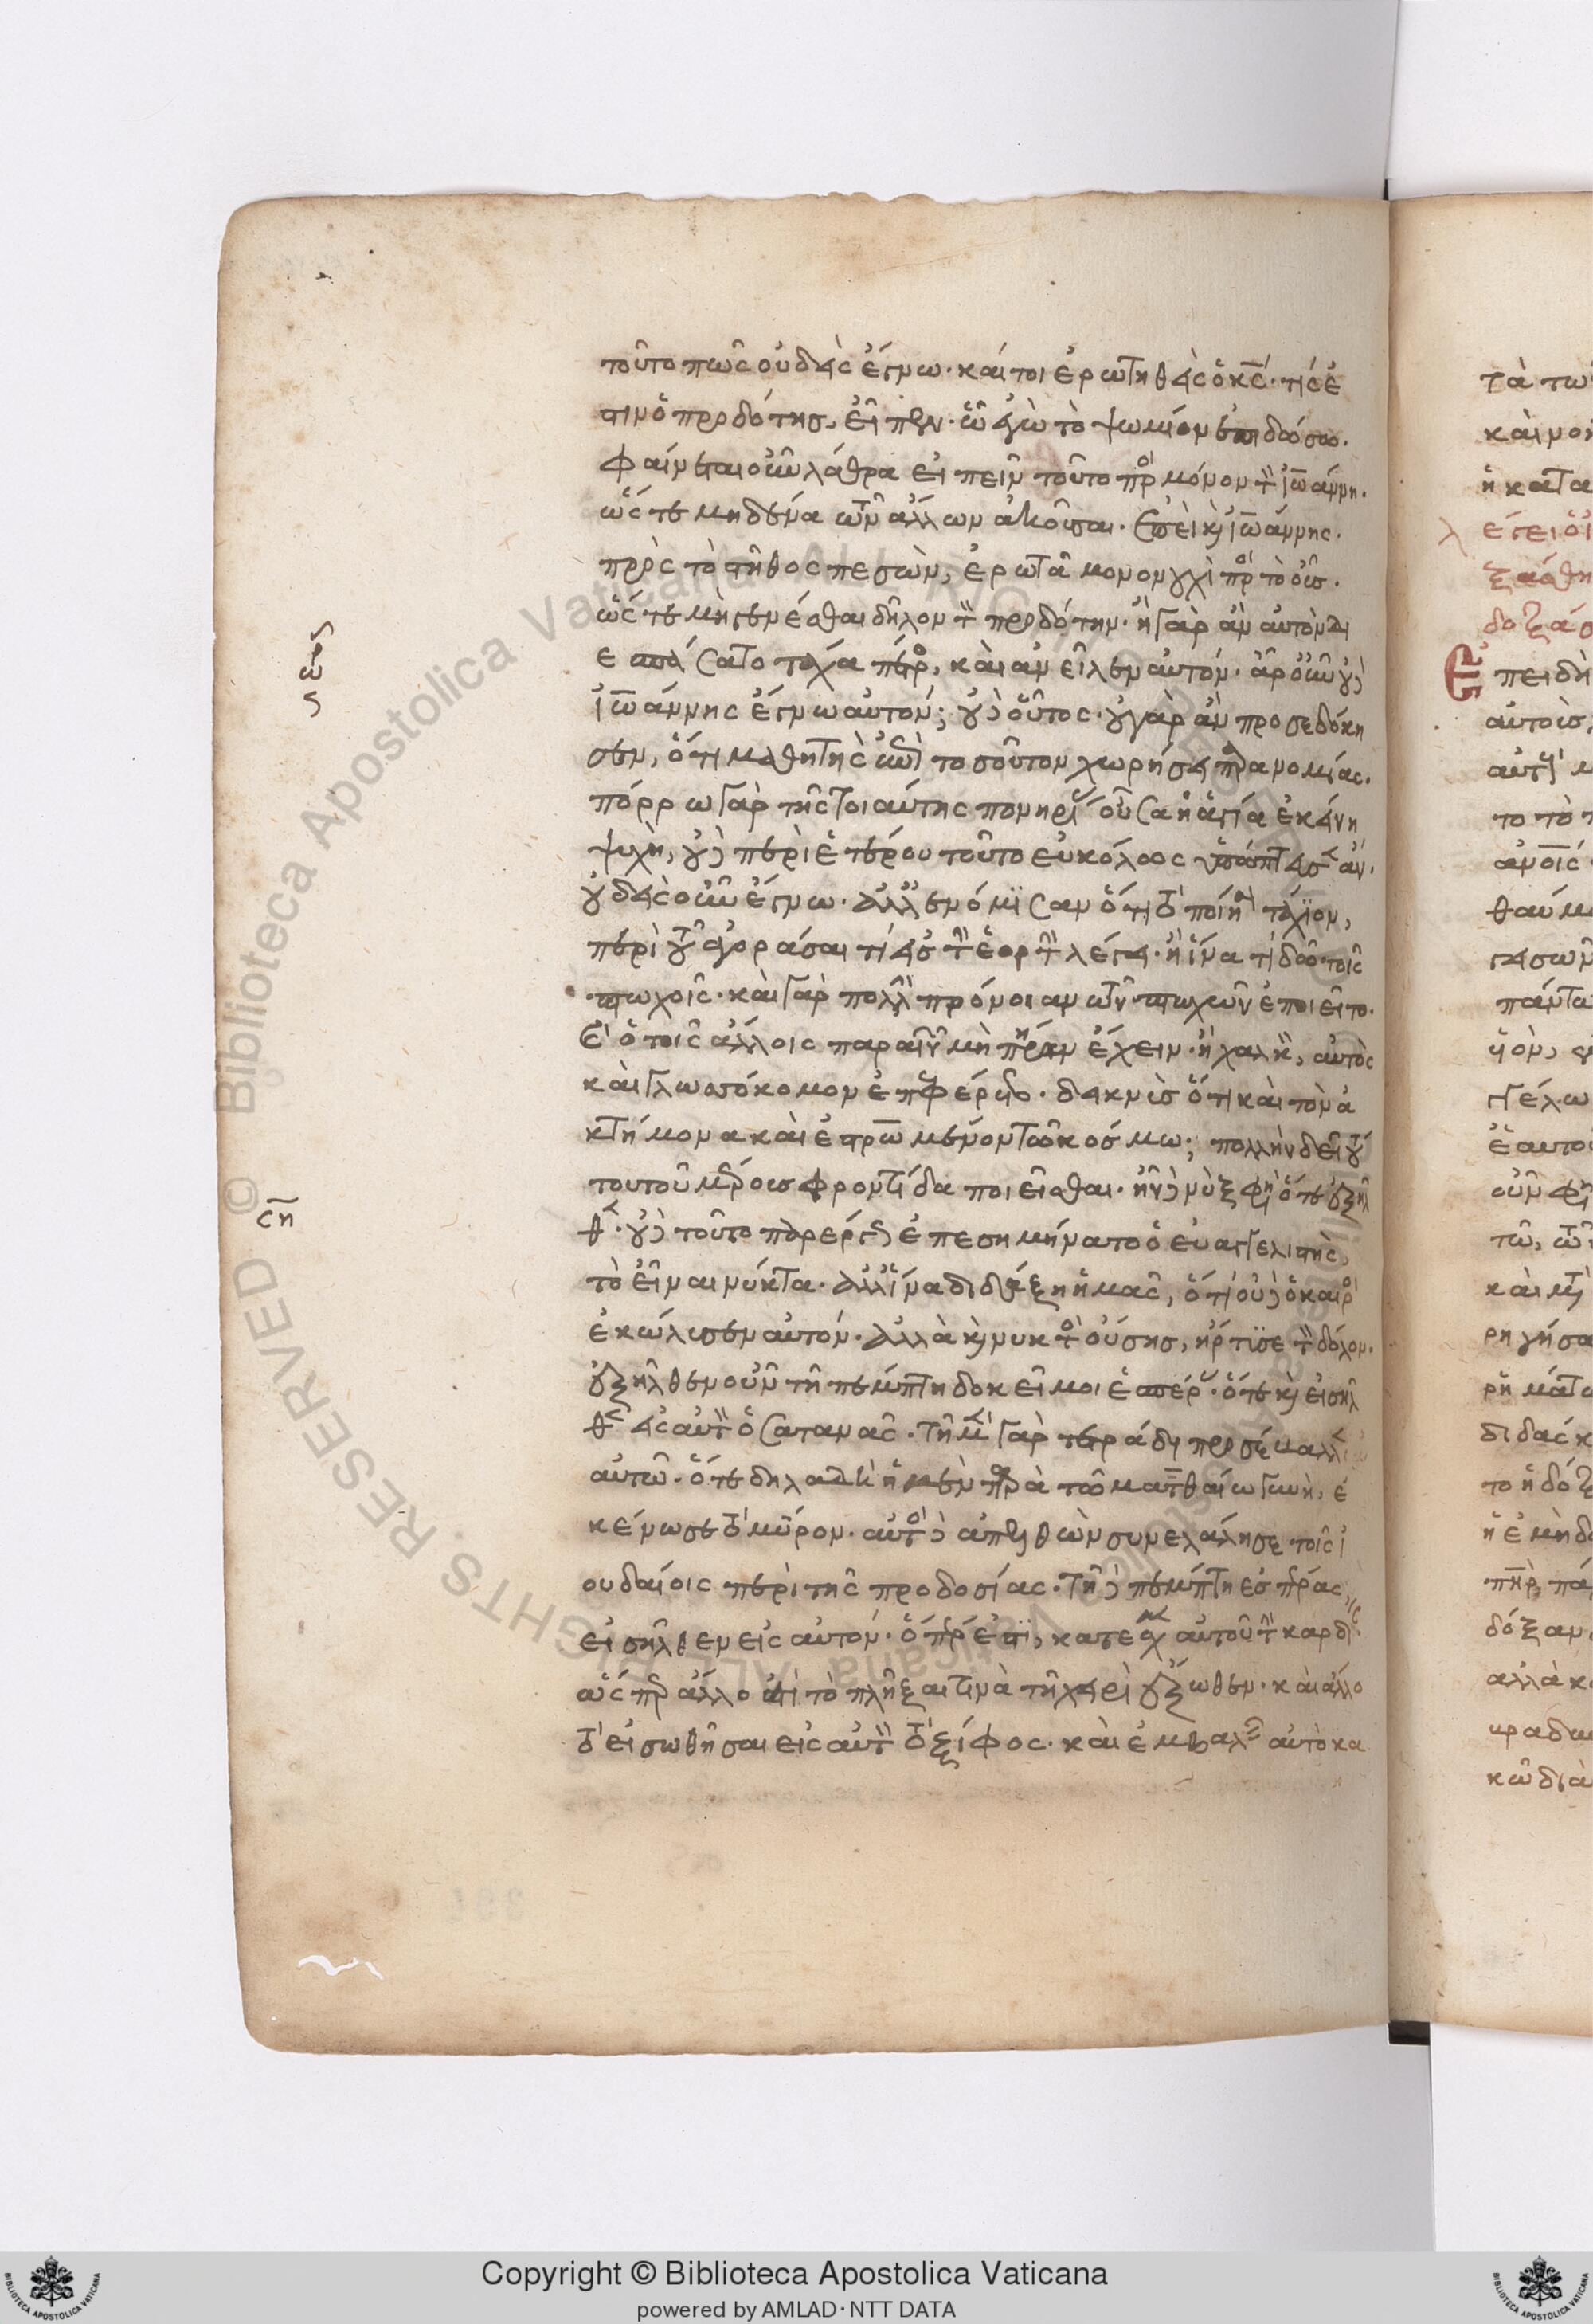 τοῦτο πῶς οὐδεὶς ἔγνω· καίτοι ἐρωτηθεὶς ὁ κ̅ς̅· τίς ἐ
στιν ὁ προδότης, εἶπεν· ᾧ ἐγὼ τὸ ψωμίον ἐπιδώσω.
φαίνεται οὖν λάθρα εἰπεῖν τοῦτο πρὸς μόνον τὸν ἰω̅άννην.
ὥστε μηδένα τῶν ἄλλων ἀκοῦσαι. ἐπεὶ καὶ ἰω̅άννης.
πρὸς τὸ στῆθος πεσὼν, ἐρωτᾷ μονονουχὶ πρὸς τὸ οὖς.
ὥστε μὴ γενέσθαι δῆλον τὸν προδότην. ἢ γὰρ ἂν αὐτὸν δι
εσπάσατο τυχὸν πέτρος, καὶ ἀνεῖλεν αὐτόν. ἆρ οὖν οὐδὲ
ἰω̅άννης ἔγνω αὐτόν; οὐδὲ οὗτος· οὐ γὰρ ἂν προσεδόκη
σεν, ὅτι μαθητὴς ὢν εἰς τοσοῦτον χωρήσει παρανομίας.
πόρρω γὰρ τῆς τοιαύτης πονηρίας οὖσα ἡ ἁγία ἐκείνη
ψυχὴ, οὐδὲ περὶ ἑτέρου τοῦτο εὐκόλως ὑπώπτευσεν ἄν.
οὐδεὶς οὖν ἔγνω. ἀλλ ἐνόμισαν ὅτι τὸ ποίησον τάχιον,
περὶ τοῦ ἀγοράσαι τι εἰς τὴν ἑορτὴν λέγει. ἢ ἵνα τι δῶ τοῖς
πτωχοῖς. καὶ γὰρ πολλὴν πρόνοιαν τῶν πτωχῶν ἐποιεῖτο.
εἰ ὁ τοῖς ἄλλοις παραινῶν μὴ πήραν ἔχειν ἢ χαλκὸν, αὐτὸς
καὶ γλωσσόκομον ἐπεφέρετο. δεικνὺς ὅτι καὶ τὸν ἀ
κτήμονα καὶ ἐσταυρωμένον τῷ κόσμῳ; πολλὴν δεῖ τού
του τοῦ μέρους φροντίδα ποιεῖσθαι. ἦν δὲ νὺξ φησὶ ὅτε ἐξῆλ
θεν. οὐδὲ τοῦτο παρέργως ἐπεσημήνατο ὁ εὐαγγελιστὴς,
τὸ εἶναι νύκτα. ἀλλ ἵνα διδάξῃ ἡμᾶς, ὅτι οὐδὲ ὁ καιρὸς
ἐκώλυσεν αὐτόν. ἀλλὰ καὶ νυκτὸς οὔσης, ἤρτυσε τὸν δόλον.
ἐξῆλθεν οὖν τῇ πέμπτῃ δοκεῖ μοι ἑσπέρας. ὅτε καὶ εἰσῆλ
θεν εἰς αὐτὸν ὁ σατανᾶς. τῇ μὲν γὰρ τετράδι προσέβαλλεν
αὐτῷ. ὅτε δηλαδὴ ἡ μὲν παρὰ τῷ ματθαίῳ γυνὴ, ἐ
κένωσε τὸ μύρον. αὐτὸς δὲ ἀπελθὼν συνελάλησε τοῖς ἰ
ουδαίοις περὶ τῆς προδοσίας. τῇ δὲ πέμπτῃ ἑσπέρας,
εἰσῆλθεν εἰς αὐτόν. ὅπερ ἐστὶ, κατέσχεν αὐτοῦ τὴν καρδίαν.
ὥσπερ ἄλλο ἐστὶ τὸ πλῆξαι τινὰ τῇ χειρὶ ἔξωθεν. καὶ ἄλλο
τὸ εἰσωθῆσαι εἰς αὐτὸν τὸ ξίφος. καὶ ἐμβαλεῖν αὐτὸ κα
ση